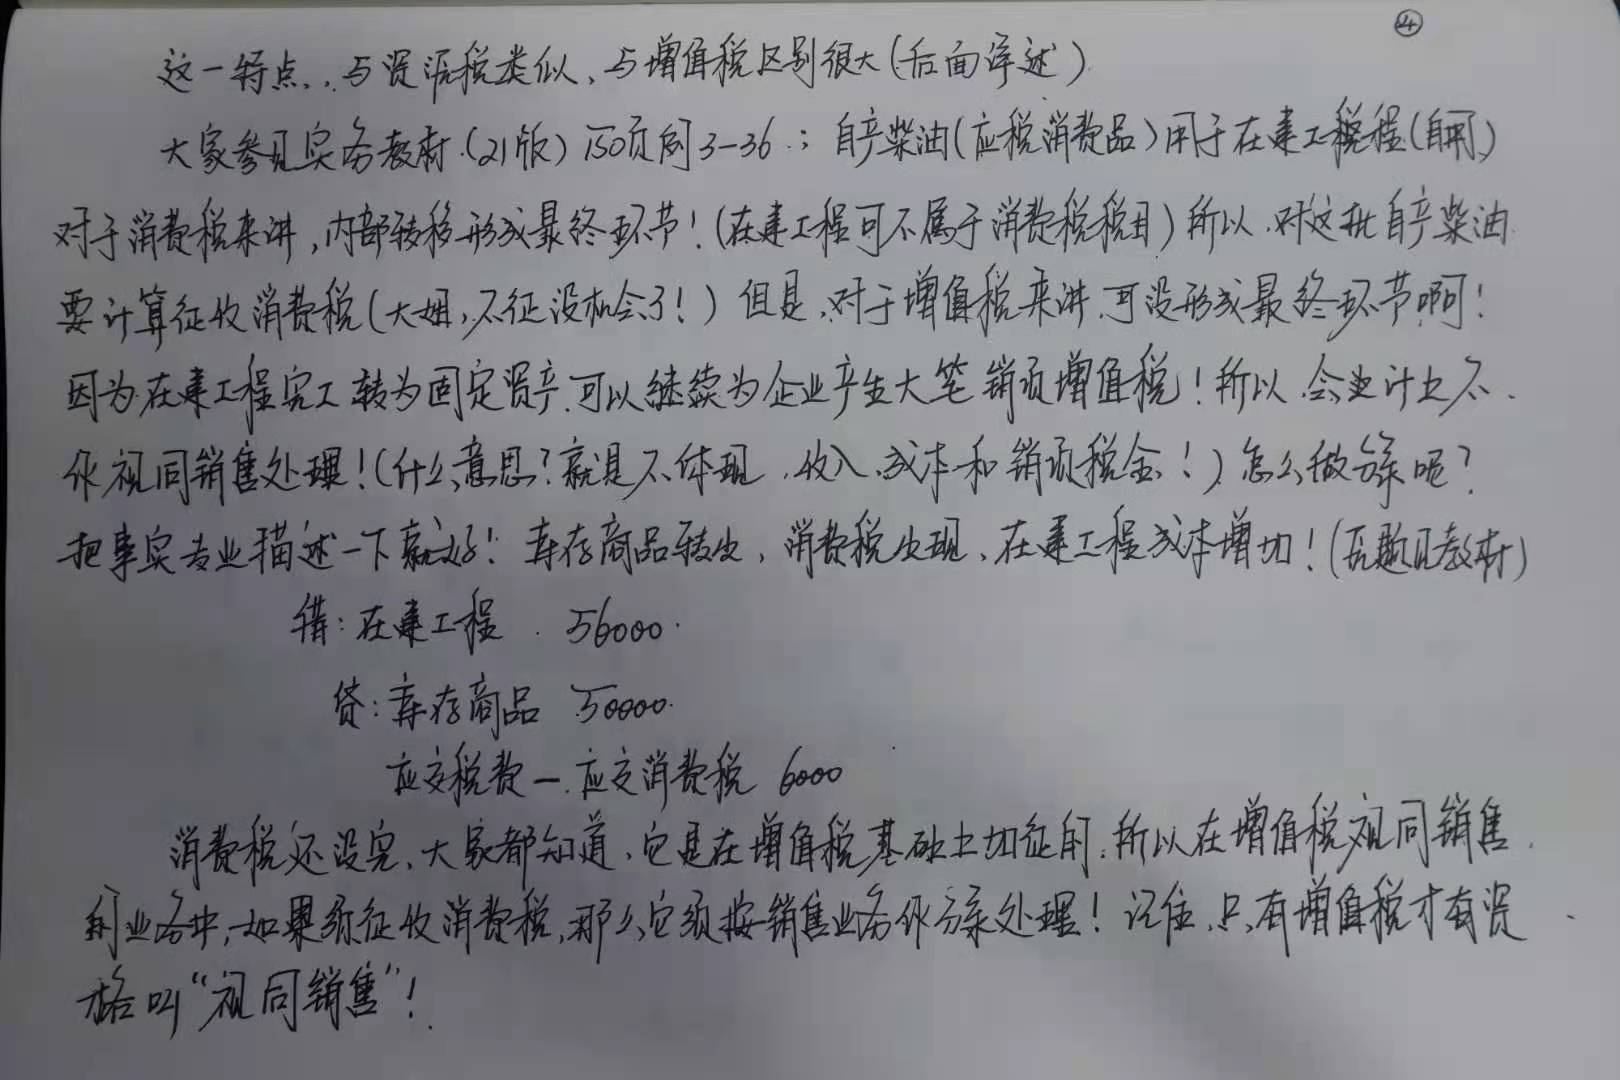 ④
这一特点,与资源税类似、与增值税区别很大(后面详述)
大家参见实务教材(21版)150页例3-36;自产柴油(应税消费品)用于在建工程(自用)
对于消费税来讲,内部转移形成最终环节!(在建工程可不属于消费税税目)所以,对这批自产柴油
要计算征收消费税(大姐,不征没机会了!)但是,对于增值税来讲,可没形成最终环节啊!
因为在建工程完工转为固定资产,可以继续为企业产生大笔销项增值税!所以,会计上不
作视同销售处理!(什么意思?就是不体现,收入、成本和销项税金!)怎么做分录呢?
把事实专业描述一下就好!库存商品转出,消费税出现,在建工程成本增加!(原题见教材)
借:在建工程 56000
贷:库存商品 50000
应交税费—应交消费税 6000
消费税还没完,大家都知道,它是在增值税基础上加征的,所以在增值税视同销售
的业务中,如果须征收消费税,那么它须按销售业务作分录处理!记住,只有增值税才有资
格叫“视同销售”!